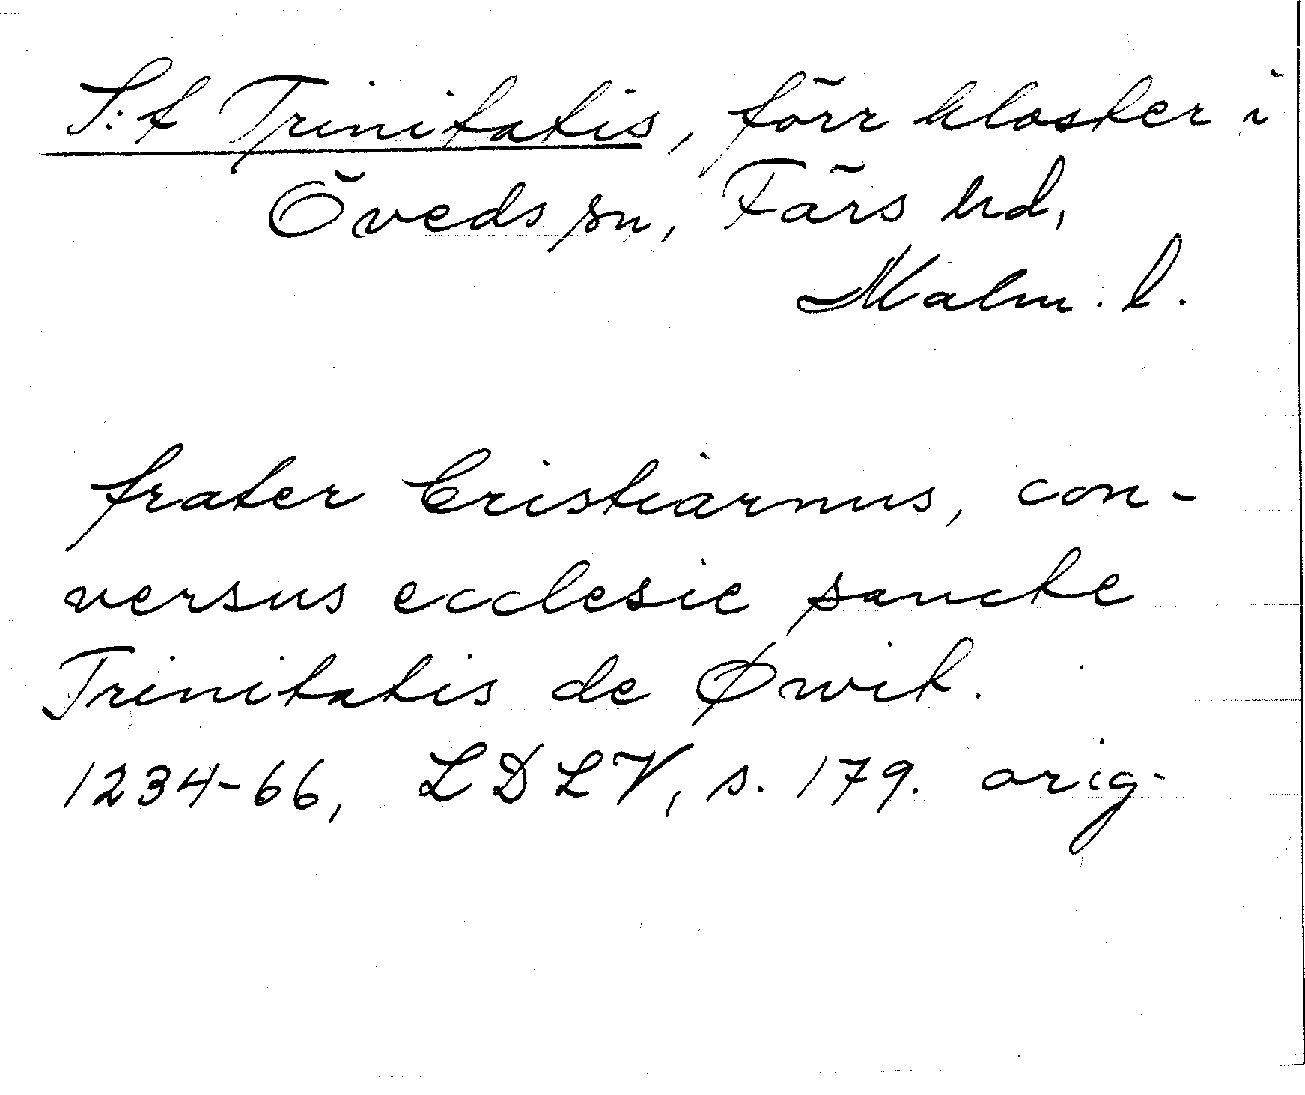 S:t Trinitatis, förr kloster i
Öveds sn, Färs hd,
Malm. l.
frater Cristiarnus, con-
versus ecclesie sancte
Trinitatis de Øwit.
1234-66, LDLV, s. 179. orig.